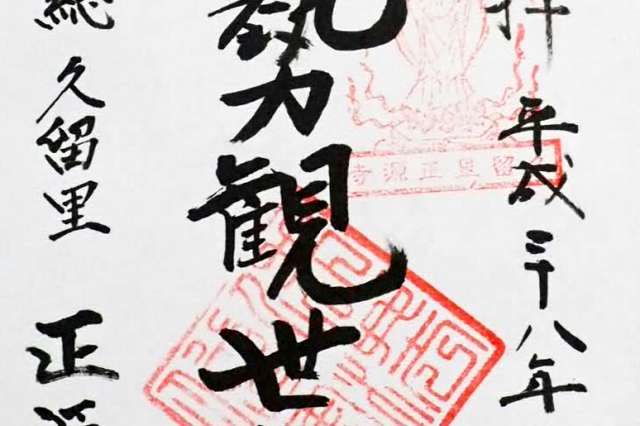 拝 平成二十八年
勢観世
久留里正源寺
総 久留里 正